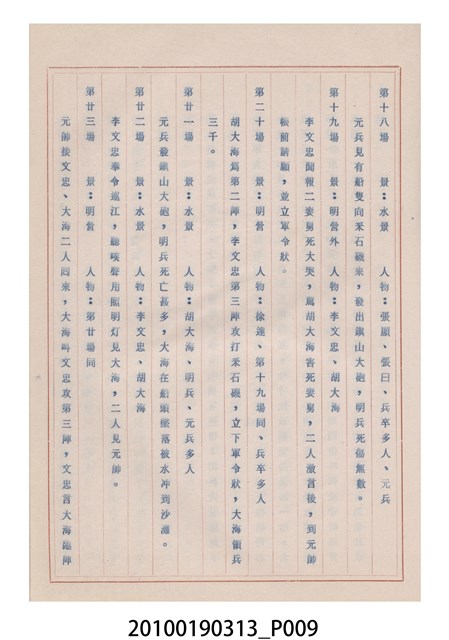 第十八場　景：水景　人物：張順、張日、兵卒多人、元兵
元兵見有船隻向釆石磯來，發出鎭山大砲，明兵死傷無數。
第十九場　景：明營外　人物：李文忠、胡大海
李文忠聞報二妻舅死大哭，罵胡大海害死妻舅，二人激言後，到元帥
帳前請願，並立軍令狀。
第二十場　景：明營　人物：徐達、第十九場同、兵卒多人
胡大海爲第二陣，李文忠第三陣攻打釆石磯，立下軍令狀，大海領兵
三千。
第廿一場　景：水景　人物：胡大海、明兵、元兵多人
元兵發鎭山大砲，明兵死亡甚多，大海在船頭墜落被水冲到沙灘。
第廿二場　景：水景　人物：李文忠、胡大海
李文忠奉令巡江，聽咳聲用照明灯見大海，二人見元帥。
第廿三場　景：明營　人物：第廿場同
元帥接文忠、大海二人囘來，大海叫文忠攻第三陣，文忠言大海臨陣
20100190313_P009